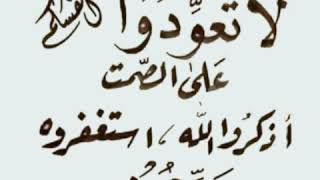 لا تعوِّدُوا أنفسكم
على الصّمت
أذكرُوا الله ، استغفروه